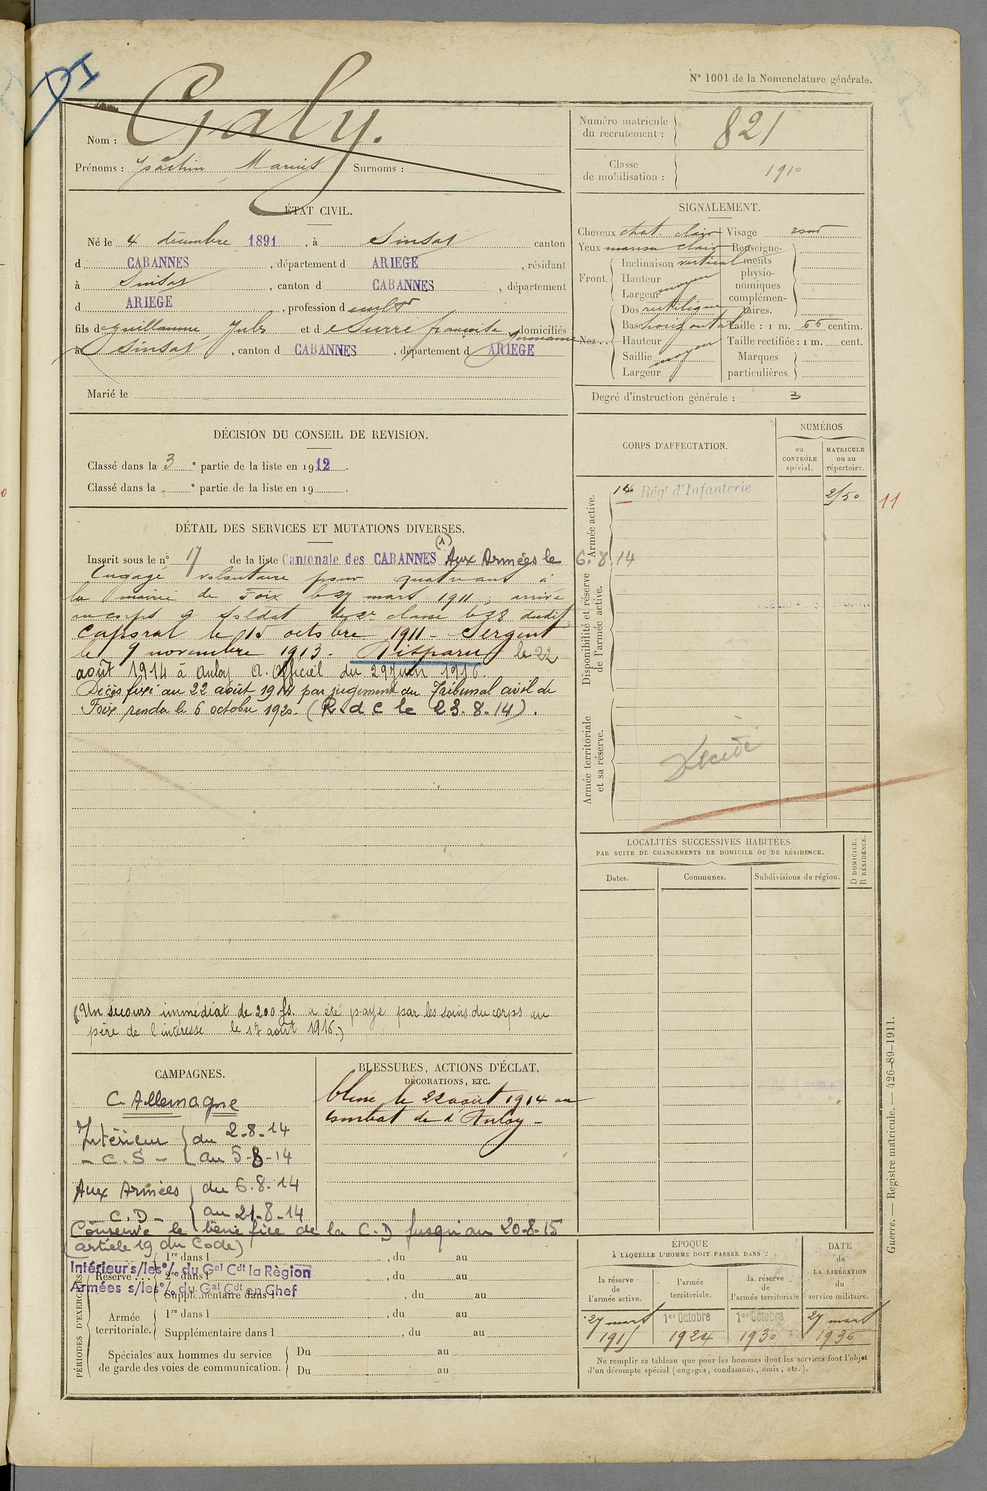 N° 1001 de la Nomenclature générale.
Nom : Galy.
Prénoms : Marius Surnoms :
Numéro matricule du recrutement : 821
Classe de mobilisation : 1910
ÉTAT CIVIL.
Né le 4 décembre 1891, à Sinsat canton
d CABANNES, département d ARIEGE, résidant
à Sinsat, canton d CABANNES, département
d ARIEGE, profession d
fils de Guillaume Jules et de françoise domiciliés
à Sinsat, canton d CABANNES, département d ARIEGE
Marié le
SIGNALEMENT.
Cheveux chat. clair Visage
Yeux marron clair Renseigne-
Front. Inclinaison vertical ments
Hauteur physio-
Largeur moyen nomiques
complémen-
Nez... Dos rectiligne taires.
Base horizontal Taille : 1 m. 66 centim.
Hauteur Taille rectifiée : 1 m. cent.
Saillie moyen Marques
Largeur particulières.
Degré d'instruction générale : 3
DÉCISION DU CONSEIL DE REVISION.
Classé dans la 3e partie de la liste en 1912.
Classé dans la e partie de la liste en 19 .
DÉTAIL DES SERVICES ET MUTATIONS DIVERSES.
Inscrit sous le n° 17 de la liste Cantonale des CABANNES (1) Aux Armées le 6.8.14
Engagé volontaire pour quatre ans à
la mairie de Foix le 27 mars 1911, arrivé
au corps et soldat de 2e classe le 28 dudit
Caporal le 15 octobre 1911 - Sergent
le 9 novembre 1913. Disparu le 22
août 1914 à Anloy A. officiel du 29 juin 1916.
Décès fixé au 22 août 1914 par jugement du Tribunal civil de
Foix rendu le 6 octobre 1920. (R. d c le 23.8.14).
(Un secours immédiat de 200 fs. a été payé par les soins du corps au
père de l'intéressé le 17 août 1916.)
CORPS D'AFFECTATION.
NUMÉROS
au CONTRÔLE spécial.
MATRICULE ou au répertoire.
Armée active.
14 Rég' d'Infanterie 2150
11
Disponibilité et réserve de l'armée active.
Armée territoriale et sa réserve.
Décédé
LOCALITÉS SUCCESSIVES HABITÉES
PAR SUITE DE CHANGEMENTS DE DOMICILE OU DE RÉSIDENCE.
Dates. Communes. Subdivisions de région.
D DOMICILE.
R RÉSIDENCE.
CAMPAGNES.
C. Allemagne
Intérieur du 2-8-14
- C.S - au 5-8-14
Aux Armées du 6-8-14
- C.D - au 21-8-14
Conserve le bénéfice de la C.D jusqu'au 20-8-15
(article 19 du Code)
BLESSURES, ACTIONS D'ÉCLAT,
DÉCORATIONS, ETC.
blessé le 22 août 1914 au
combat de d'Anloy -
PÉRIODES D'EXERCICES
Intérieur s/les o/. du Gal Cdt la Règion
Armées s/les o/. du Gal Cdt en Chef
Réserve...
1re dans l , du au
2e dans l , du au
Supplémentaire dans l , du au
Armée territoriale.
1re dans l , du au
Supplémentaire dans l , du au
Spéciales aux hommes du service
de garde des voies de communication.
Du au
Du au
ÉPOQUE
À LAQUELLE L'HOMME DOIT PASSER DANS :
la réserve de l'armée active.
l'armée territoriale.
la réserve de l'armée territoriale
DATE de LA LIBÉRATION du service militaire.
27 mars 1915
1er Octobre 1924
1er Octobre 1930
27 mars 1936
Ne remplir ce tableau que pour les hommes dont les services font l'objet
d'un décompte spécial (engagés, condamnés, omis, etc.).
Guerre. — Registre matricule. — 426-89-1911.